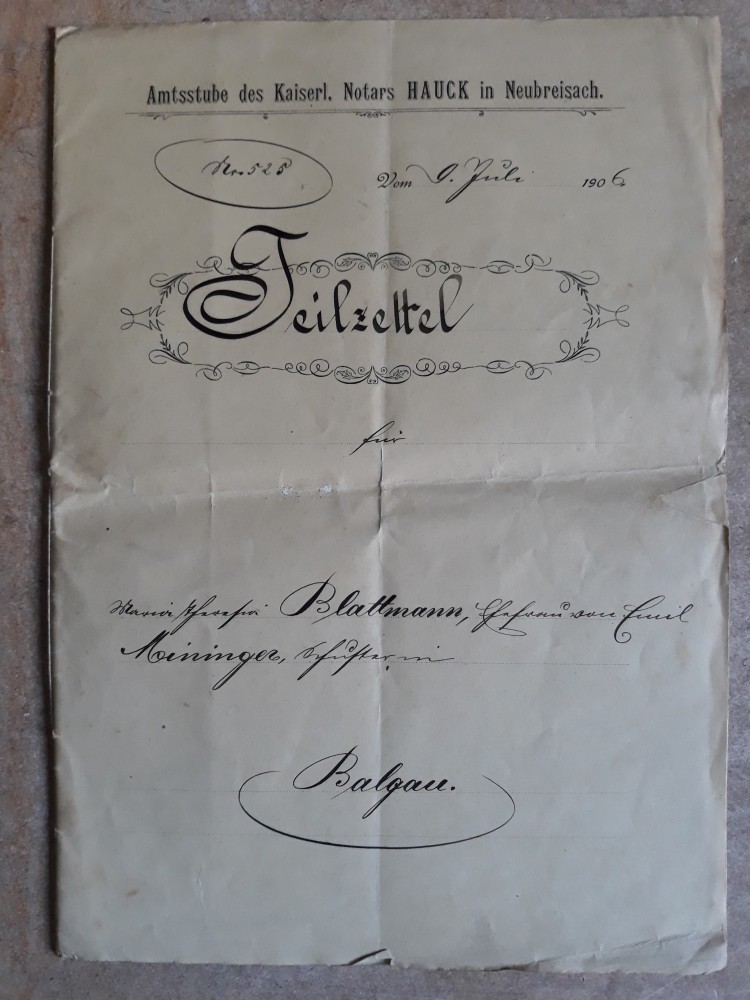 Amtsstube des Kaiserl. Notars HAUCK in Neubreisach.
Nr. 525
Vom 9. Juli 1906
Teilzettel
für
Maria Theresia Blattmann, Ehefrau von Emil
Meininger, Schuster in
Balgau.